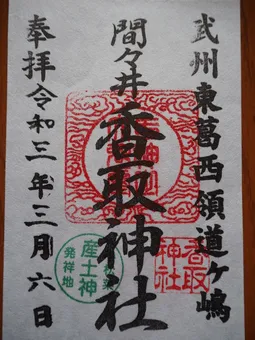 武州東葛西領道ヶ嶋
間々井
香取神社
奉拝令和三年三月六日
香取
神社
産土神
発祥地